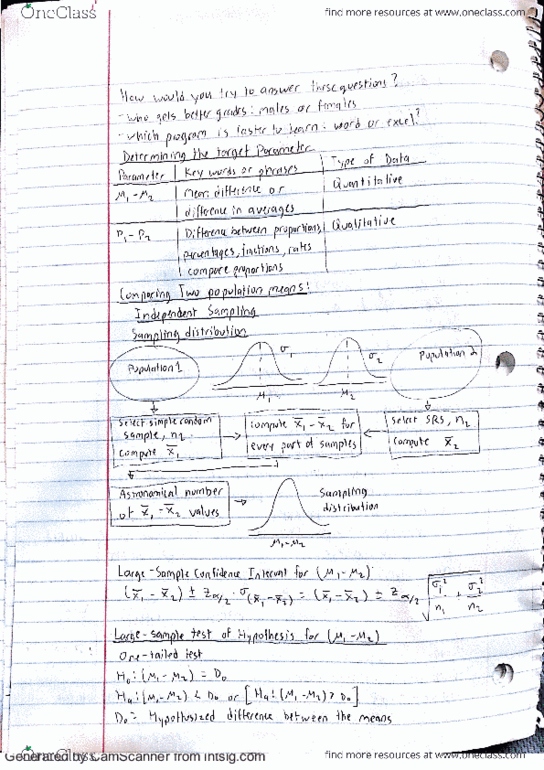 OneClass
find more resources at www.oneclass.com
How would you try to answer these questions?
- who gets better grades: males or females
- which program is faster to learn: word or excel?
Determining the target Parameter
Parameter | Key words or phrases | Type of Data
μ₁ - μ₂ | Mean difference or | Quantitative
difference in averages
P₁ - P₂ | Difference between proportions, | Qualitative
percentages, fractions, rates
compare proportions
Comparing Two population means:
Independent Sampling
Sampling distribution
Population 1
σ₁
μ₁
σ₂
μ₂
Population 2
Select simple random
sample, n₂
compute x̄₁
compute x̄₁ - x₂ for
every part of samples
Select SRS, n₂
Compute x̄₂
Astronomical number
of x̄₁ - x̄₂ values
Sampling
distribution
μ₁ - μ₂
Large-Sample Confidence Interval for (μ₁ - μ₂):
(x̄₁ - x̄₂) ± Z α/2 · σ(x̄₁ - x̄₂) = (x̄₁ - x̄₂) ± Z α/2 √(σ₁²/n₁ + σ₂²/n₂)
Large-sample test of Hypothesis for (μ₁ - μ₂)
One-tailed test
H₀: (μ₁ - μ₂) = D₀
Ha: (μ₁ - μ₂) < D₀ or [Ha: (μ₁ - μ₂) > D₀]
D₀ = Hypothesized difference between the means
Generated by CamScanner from intsig.com
find more resources at www.oneclass.com